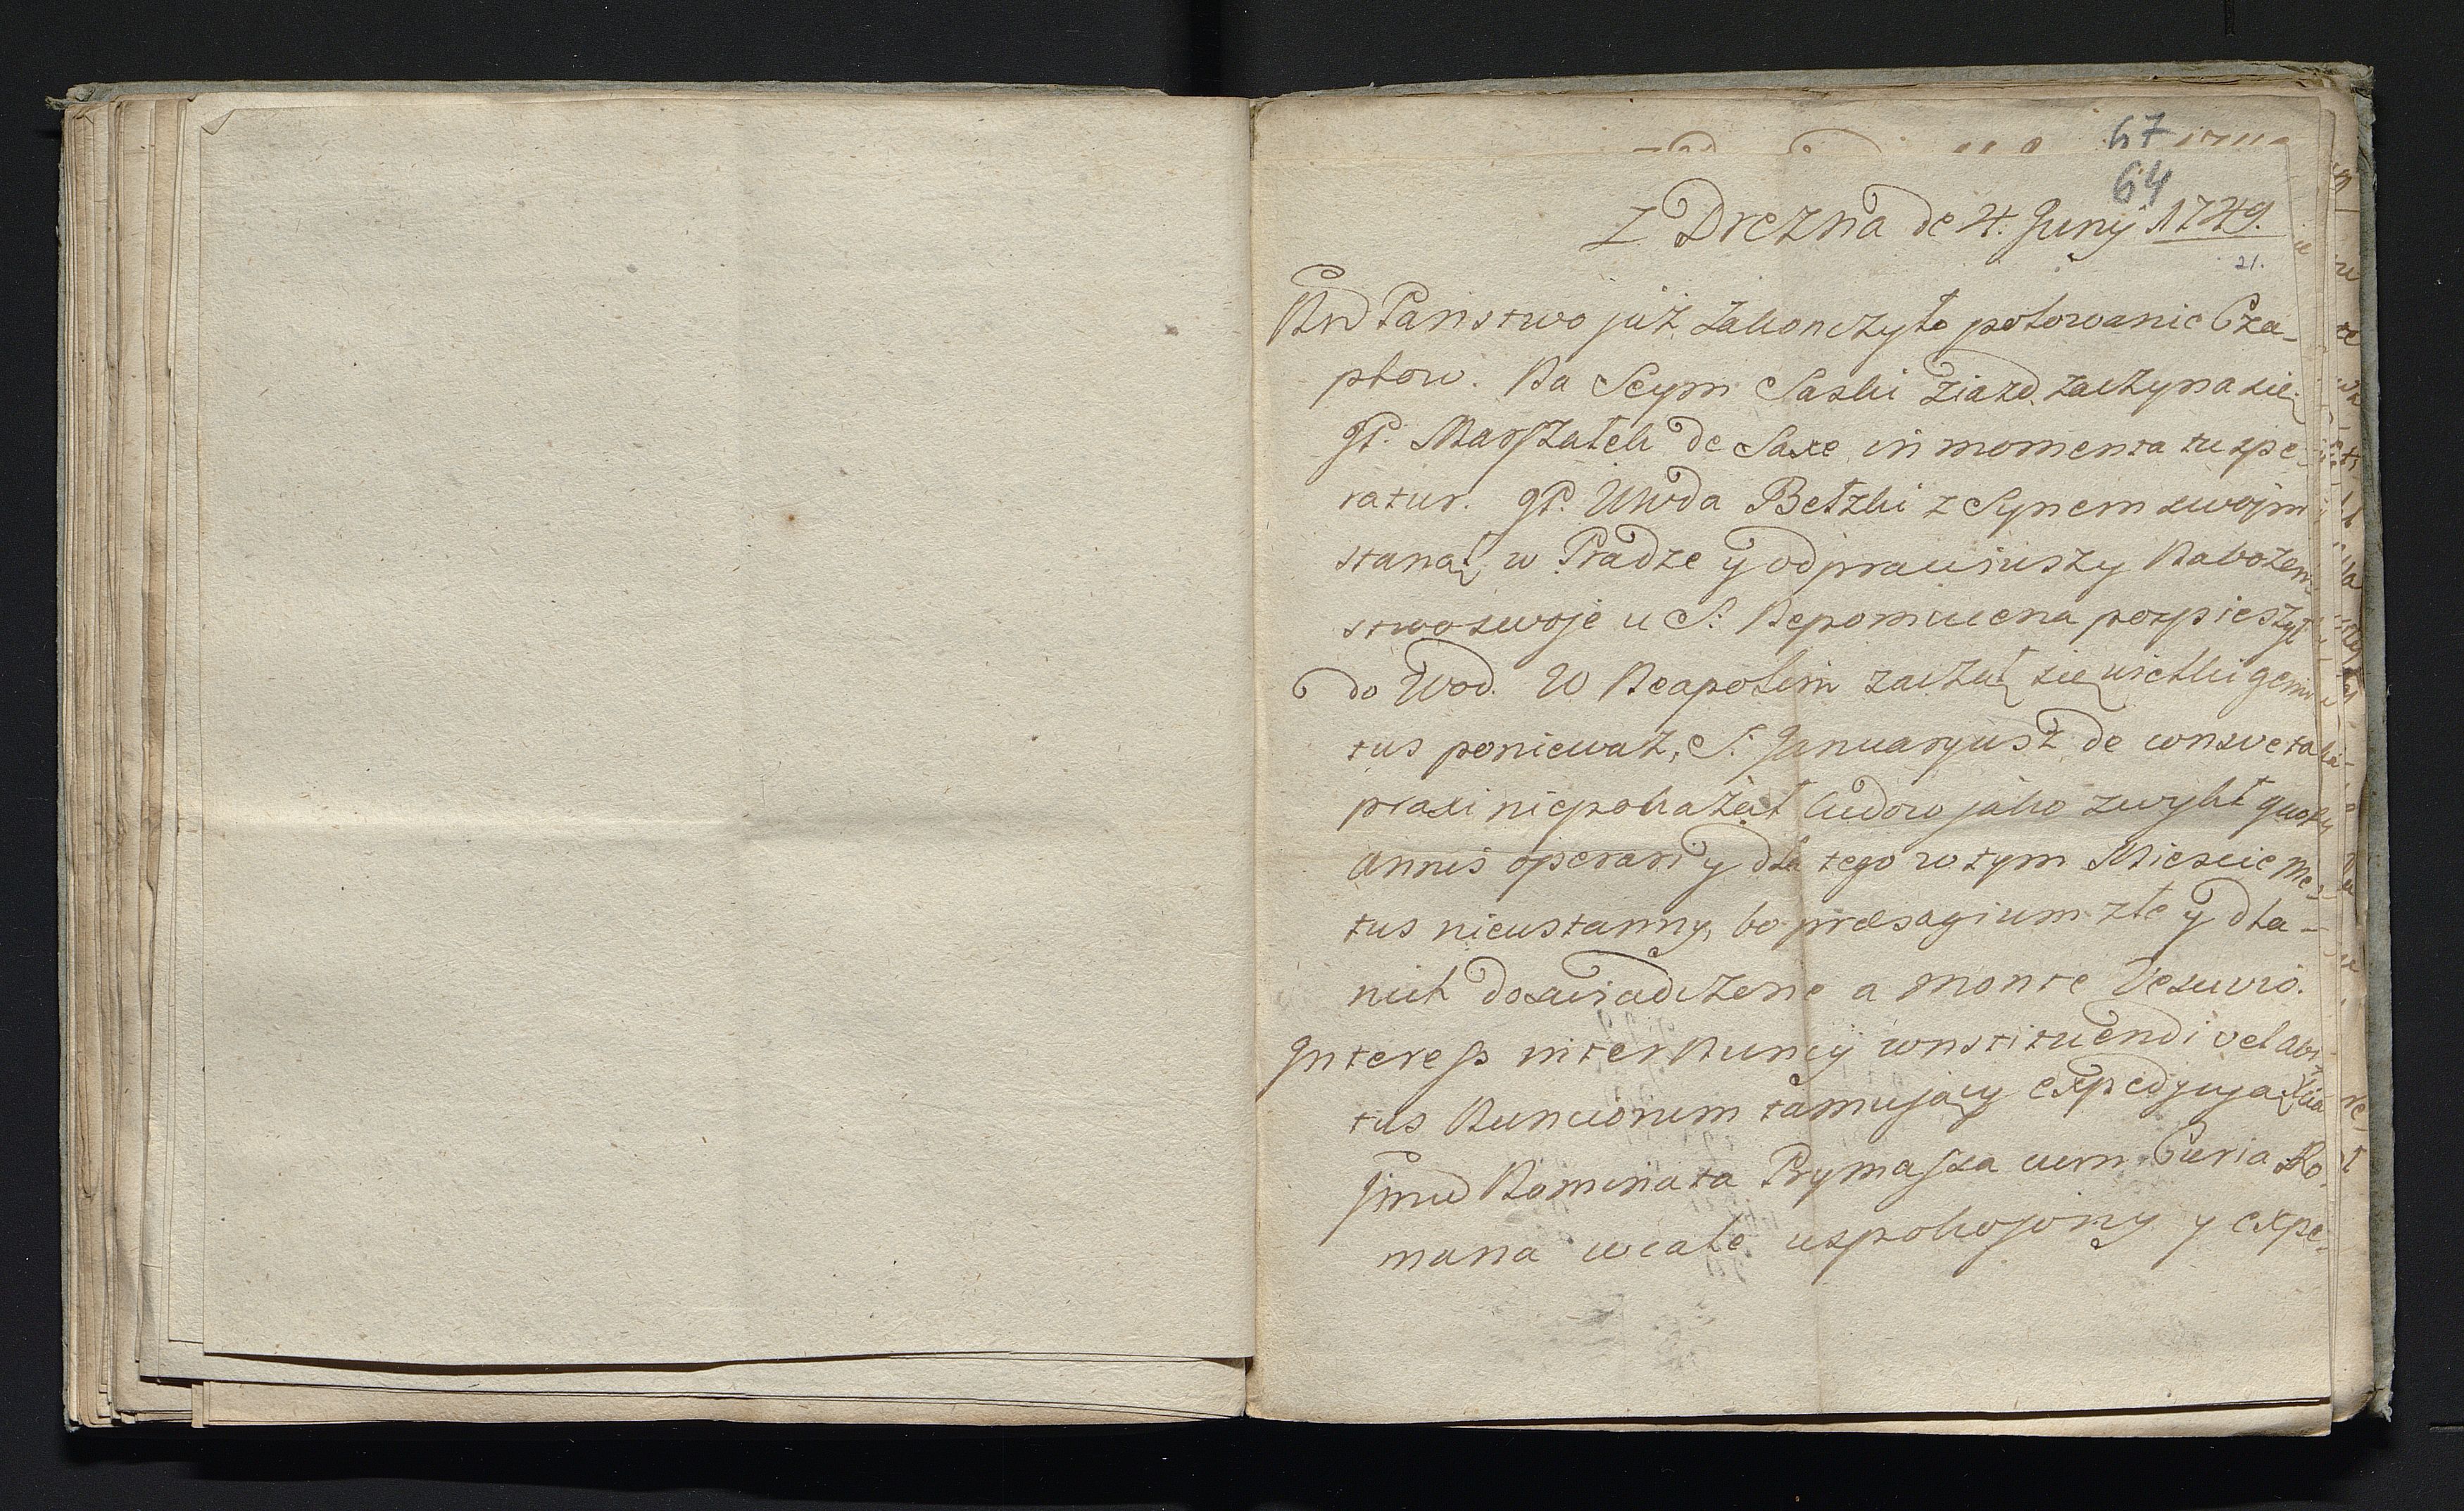 67
64
Z Drezna de 4. Junij 1749.
21.
Nn Panstwo już zakonczyło polowanie Cza-
plow. Na Seym Saski ziazd zaczyna się.
JP. Marszałek de Saxe in momenta tu spe-
ratur. JP. Wwda Bełzki z Synem swojm
stanął w Pradze y odprawiwszy Nabożen-
stwo swoje u S. Nepomucena pospieszył
do Wod. W Neapolim zaczął się wielki gemi
tus ponieważ, S. Januaryusz de consveta
praxi niepokazał cudow jako zwykł quot
annis operari y dla tego w tym Miescie Me-
tus nieustanny, bo præsagium złe y dla-
nich doswiadczene a Monte Vesuvio.
Interess inter Nuncij constituendi vel Abi
tus Nunciorum tamujący expedycyą
Jmci Nominata Prymassa cum Curia Ro-
mana wcale uspokojony y expe-